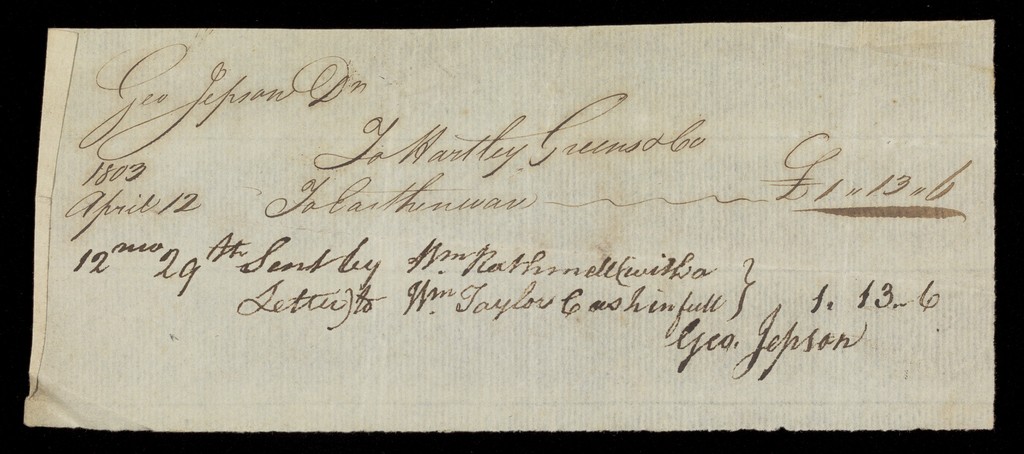 Geo Jepson Dr
To Hartley Greens & Co
1803
April 12 To Earthenware £1 " 13 " 6
12 mo 29th Sent by Wm Rathmell (with a
Letter) to Wm Taylor Cash in full } 1 " 13 " 6
Geo. Jepson